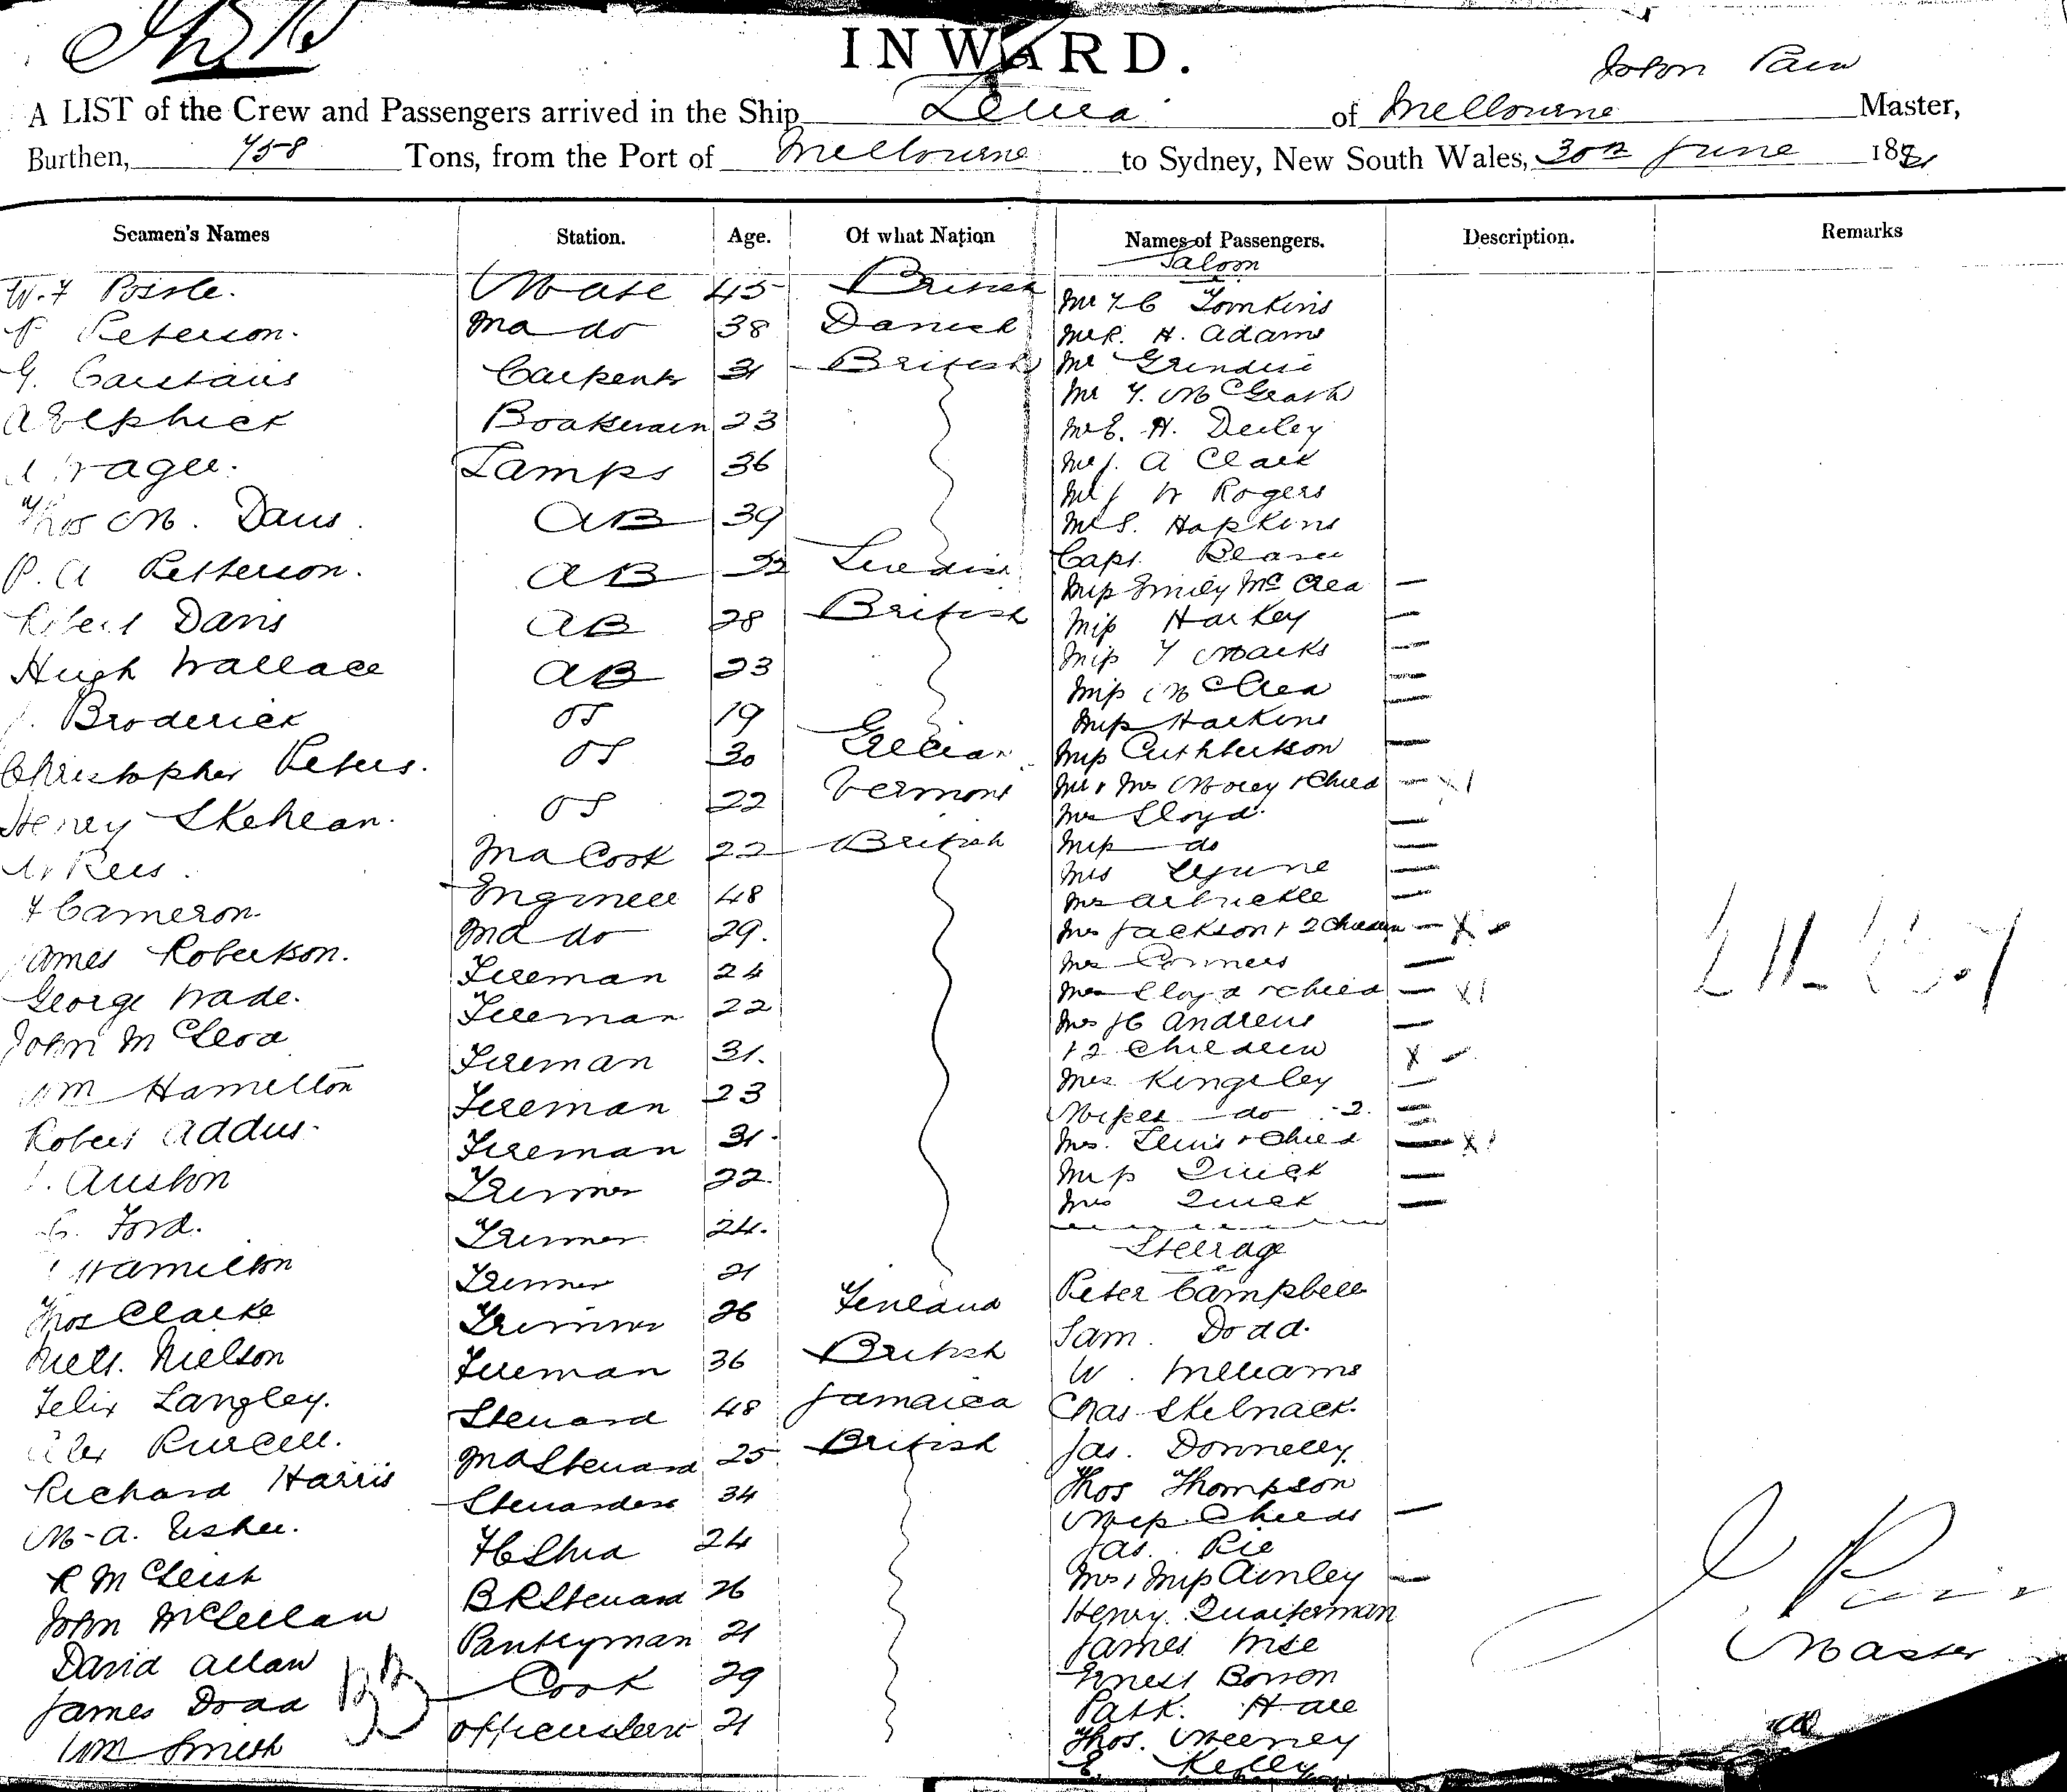 INWARD.
John Pain
A LIST of the Crew and Passengers arrived in the Ship of Melbourne Master,
Burthen, 458 Tons, from the Port of Melbourne to Sydney, New South Wales, 30th June 188
Seamen's Names Station. Age. Of what Nation Names of Passengers. Description. Remarks
Saloon
Mate 45 British Mr Tomkins
Peterson. 2nd do 38 Danish Mr R. H. Adams
G. Carstairs Carpentr 31 British Mr
A Elphick 23 Mr McGrath
Lamps 36 Mr E. H. Deeley
Thos M. Davis AB 39 Mr J. A Clark
P. A Petterson. AB Mr J W Rogers
Robert Davis AB 28 British Mr S. Hopkins
Hugh Wallace AB 23 Capt.
Broderick OS 19 Miss Emily McCrea
Christopher Peters. OS 30 Grecian Miss Harkey
Henry Skehean. OS 22 Vermont Miss Marks
Rees. 2nd Cook 22 British Miss McCrea
Cameron Engineer 48 Miss Harkins
James Robertson. 2nd do 29. Miss Cuthbertson
George Wade. Fireman 24 Mr & Mrs Morey & Child
John McLeod Fireman 22 Mrs Lloyd.
Wm Hamilton Fireman 31. Miss do
Robert Addus. Fireman 23 Mrs
Auston Fireman 31. Mrs Arbuckle
Ford. Trimmer 22. Mrs Jackson & 2 Children
Hamilton Trimmer 24. Mrs Conners
Thos Clarke Trimmer 21 Mrs Lloyd & Child
Niels. Nielson Trimmer 26 Finland Mrs Andrews
Felix Langley. Fireman 36 British & 2 Children
Alex Purcell. Steward 48 Jamaica Mrs Kingsley
Richard Harris 2nd Steward 25 British Misses do 2.
M. A. Usher. Stewardess 34 Mrs. Lewis & Child
R McLeish 24 Miss Quick
John McLellan Steward 26 Mrs Quick
David Allan Pantryman 21
James Dodd Cook 29
Wm Smith 21
Steerage
Peter Campbell
Sam. Dodd.
W. Williams
Chas
Jas. Donnelly
Thos Thompson
Miss Childs
Jas. Rie
Mrs & Miss Ainley
Henry. Quaiterman
James Wise
Ernest
Patk. Hare
Thos. Meeney
E. Kelly
J. Pain
Master